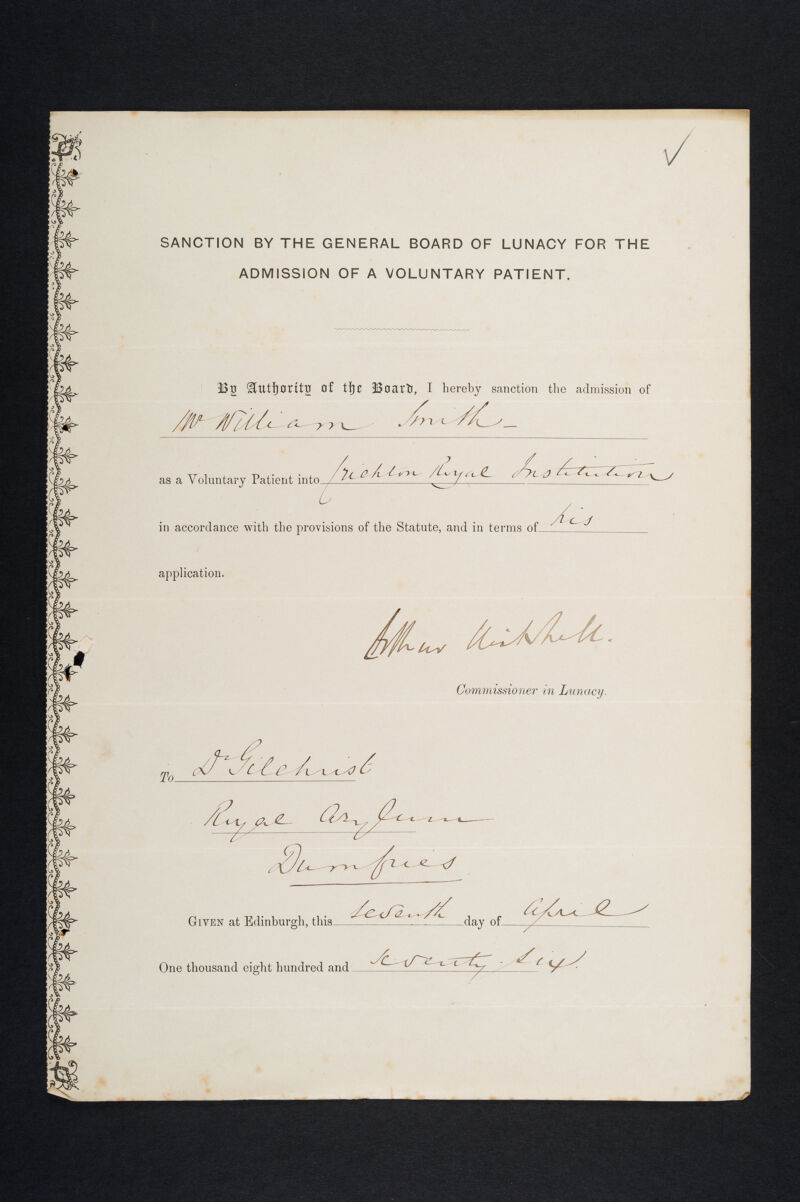 SANCTION BY THE GENERAL BOARD OF LUNACY FOR THE
ADMISSION OF A VOLUNTARY PATIENT.
By Authority of the Board, I hereby sanction the admission of
Mr William Smith
as a Voluntary Patient into Crichton Royal Institution
in accordance with the provisions of the Statute, and in terms of his
application.
Arthur Mitchell.
Commissioner in Lunacy.
To Dr Gilchrist
Royal Asylum
Dumfries
GIVEN at Edinburgh, this seventh day of April
One thousand eight hundred and seventy six.